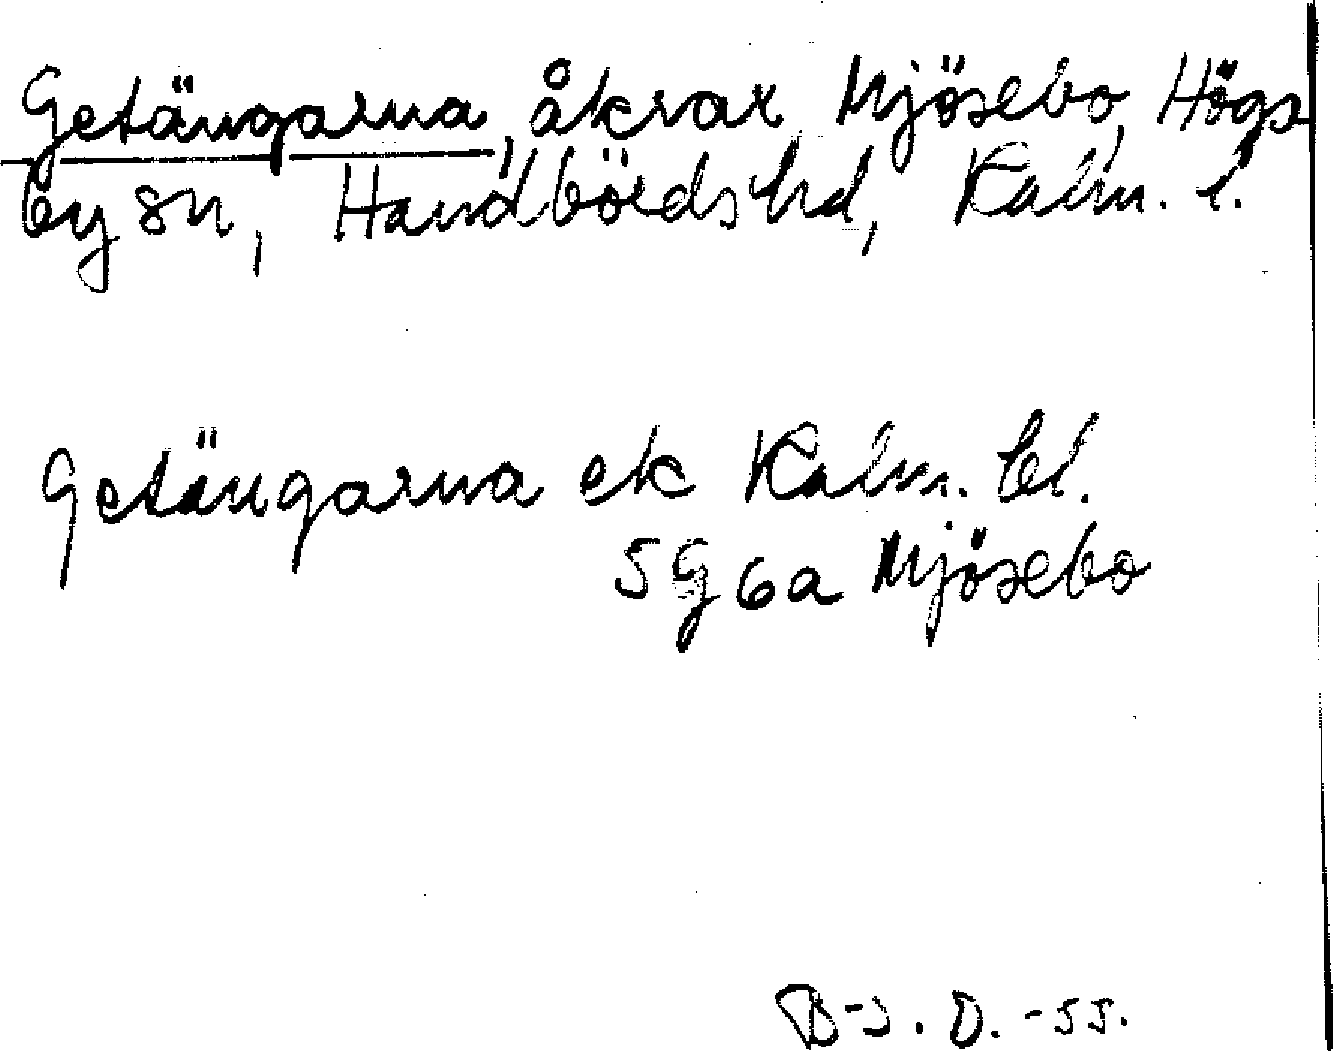 Getängarna, åkrar Mjösebo, Högs
by sn, Handbördshd, Kalm. l.
Getängarna ek Kalm. bl.
5 G 6 a Mjösebo
B-J. D. -55.